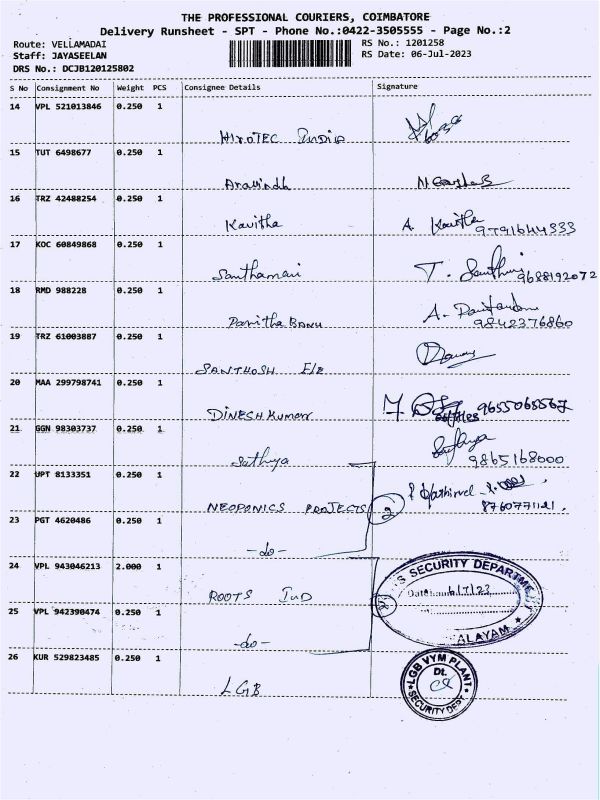 THE PROFESSIONAL COURIERS, COIMBATORE
Delivery Runsheet - SPT - Phone No.:0422-3505555 - Page No.:2
Route: VELLAMADAI
RS No.: 1201258
Staff: JAYASEELAN
RS Date: 06-Jul-2023
DRS No.: DCJB120125802
S No Consignment No Weight PCS Consignee Details Signature
14 VPL 521013846 0.250 1
HIROTEC India
15 TUT 6498677 0.250 1
Aravindh
16 TRZ 42488254 0.250 1
Kavitha A. Kavitha
9791644333
17 KOC 60849868 0.250 1
Santhamani T.
9688192072
18 RMD 988228 0.250 1
Panitha BANU A.
9842376860
19 TRZ 61003887 0.250 1
SANTHOSH
20 MAA 299798741 0.250 1
DINESH Kumar 9655065567
21 GGN 98303737 0.250 1
Sathya Sathya
9865168000
22 UPT 8133351 0.250 1
NEOPONICS PROJECTS 2
8760771121.
23 PGT 4620486 0.250 1
-do-
24 VPL 943046213 2.000 1
ROOTS InD
S SECURITY DEPARTMENT
6/7/23
ALAYAM
25 VPL 942390474 0.250 1
-do-
26 KUR 529823485 0.250 1
LGB
LGB VYM PLANT
Dt.
SECURITY DEPT.